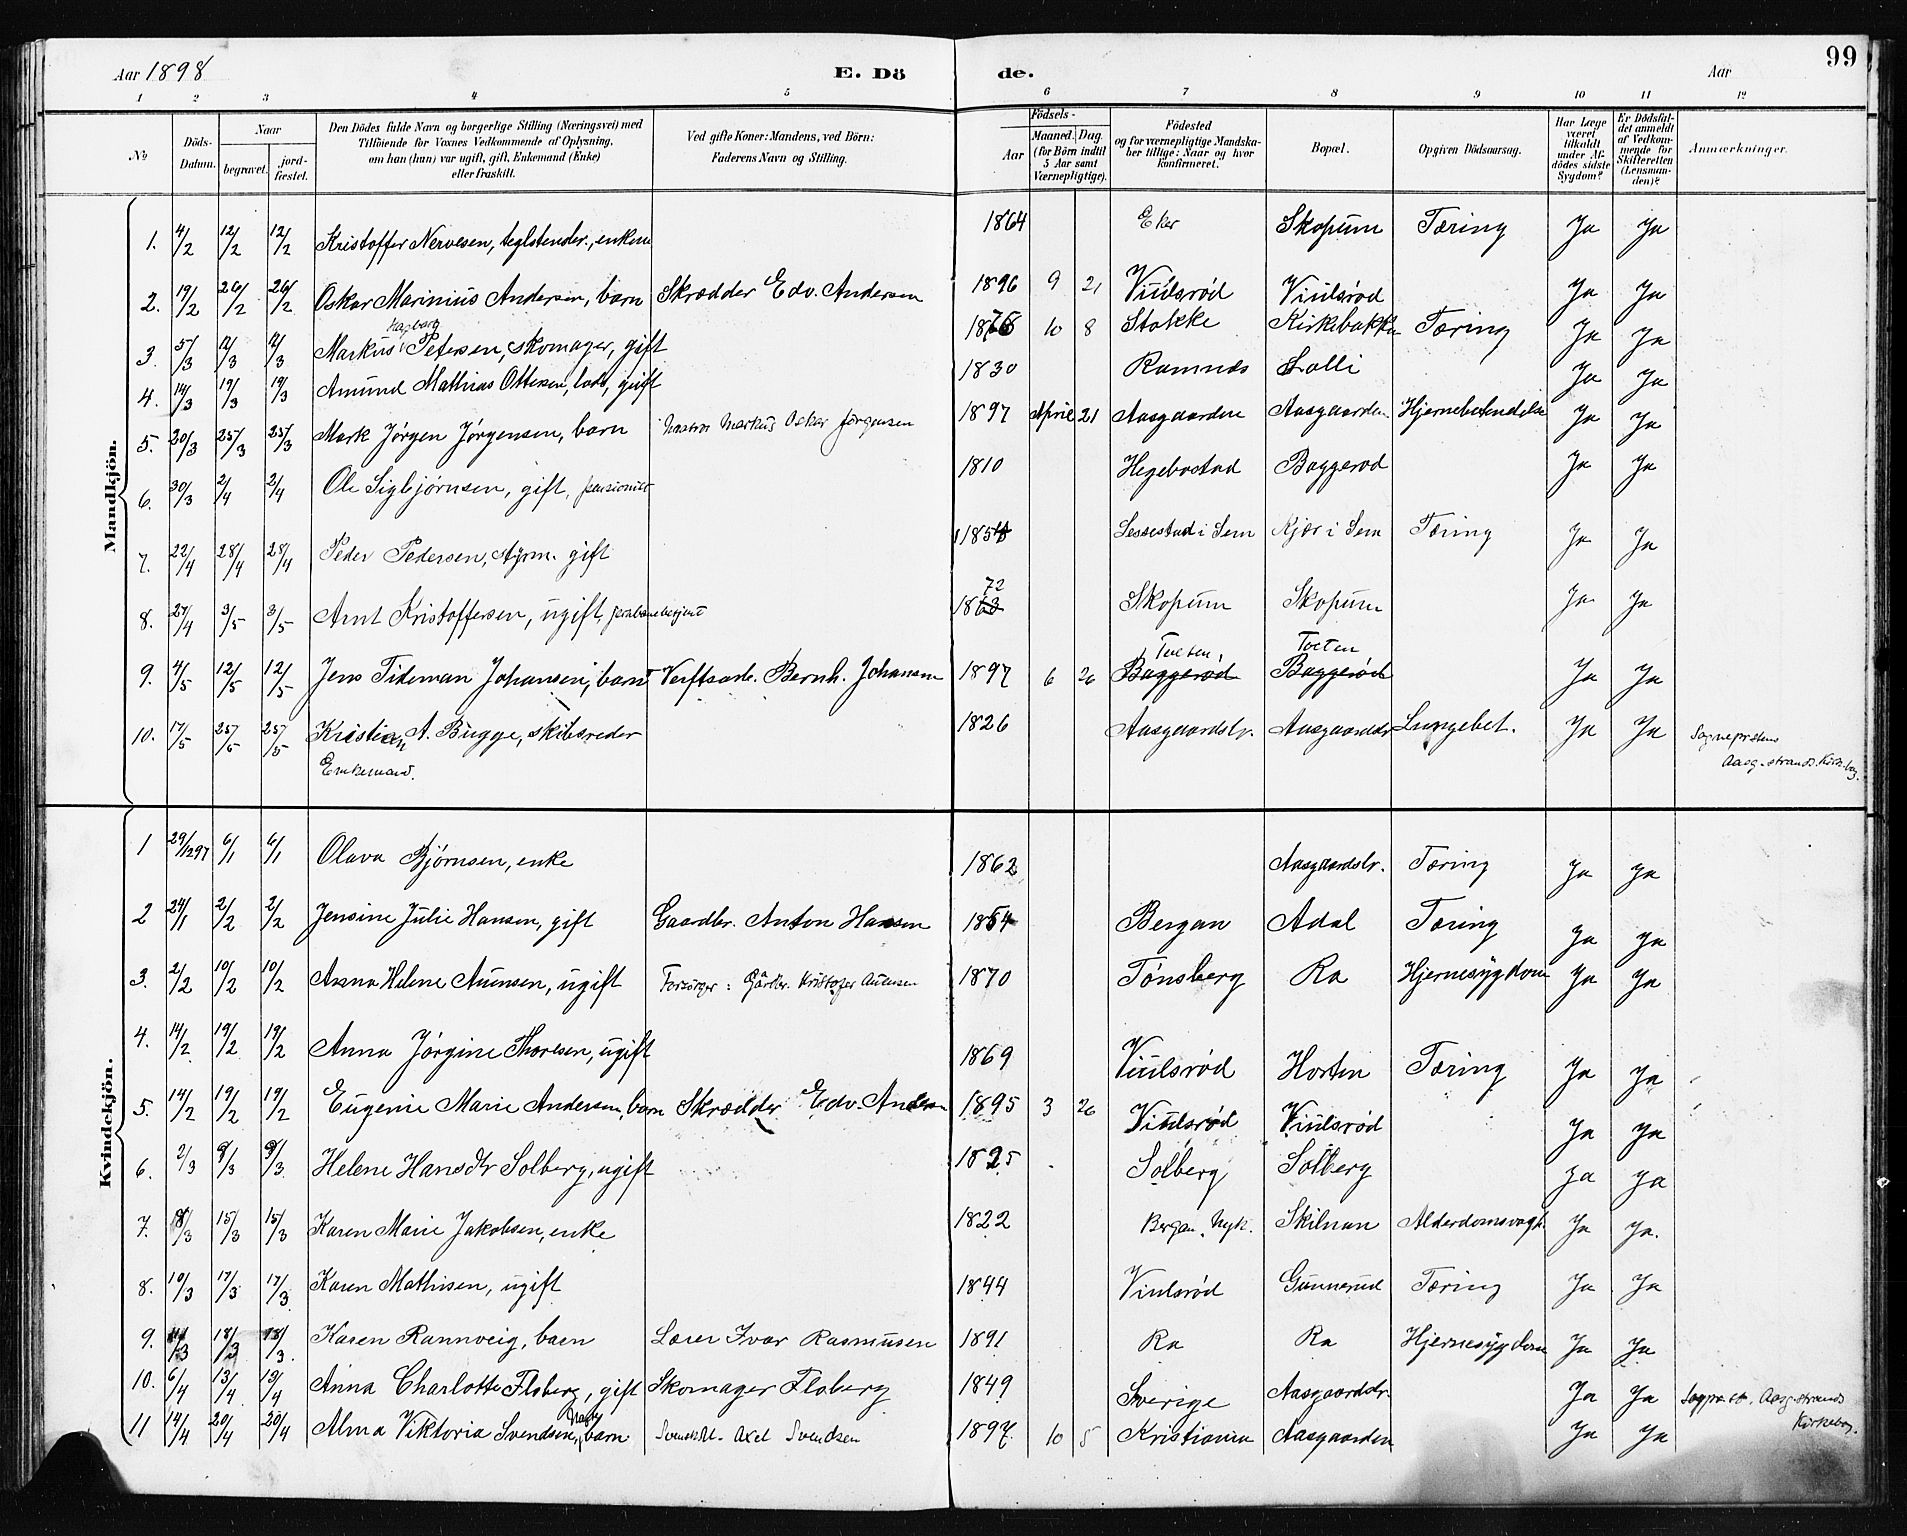 99
Aar 1898 E. Dö de. Aar
1 2 3 4 5 6 7 8 9 10 11 12
No
Döds-Datum.
Naar begravet. jord-fæstet.
Den Dödes fulde Navn og borgerlige Stilling (Næringsvei) med Tilföiende for Voxnes Vedkommende af Oplysning, om han (hun) var ugift, gift, Enkemand (Enke) eller fraskilt.
Ved gifte Koner: Mandens, ved Börn: Faderens Navn og Stilling.
Födsels-
Aar Maaned. Dag. (for Börn indtil 5 Aar samt Værnepligtige).
Födested og for værnepligtige Mandskaber tillige: Naar og hvor konfirmeret.
Bopæl.
Opgiven Dödsaarsag.
Har Læge været tilkaldt under Afdödes sidste Sygdom?
Er Dödsfaldet anmeldt af Vedkommende for Skifteretten (Lensmanden)?
Anmærkninger.
Mandkjön.
1. 4/2 12/2 12/2 Kristoffer Nervesen, teglstender., enkem 1864 Eker Skopum Tæring Ja Ja
2. 19/2 26/2 26/2 Oskar Marinius Andersen, barn Skrædder Edv. Andersen 1896 9 21 Viulsrød Viulsrød Ja Ja
3. 5/3 12/3 12/3 Markus Hagbarg Petersen, skomager, gift 1876 10 8 Stokke Kirkebakke Tæring Ja Ja
4. 14/3 19/3 19/3 Amund Mathias Ottersen, lods, gift 1830 Ramnæs Lolli Ja Ja
5. 20/3 25/3 25/3 Mark Jørgen Jørgensen, barn Matros Markus Oskar Jørgensen 1897 April 21 Aasgaarden Aasgaarden Hjernebetendelse Ja Ja
6. 30/3 2/4 2/4 Ole Sigbjørnsen, gift, pensionist 1810 Hegebostad Baggerød Ja Ja
7. 22/4 28/4 28/4 Peder Pedersen, styrm. gift 185 Sessestad i Sem Kjær i Sem Tæring Ja Ja
8. 27/4 3/5 3/5 Arnt Kristoffersen, ugift, jernbanebetjent 1863 72 Skopum Skopum Ja Ja
9. 4/5 12/5 12/5 Jens Tideman Johansen, barn Verftsarb. Bernh. Johansen 1897 6 26 Baggerød Tveten Baggerød Tveten Ja Ja
10. 17/5 25/5 25/5 Kristian A. Bugge, skibsreder 1826 Aasgaardstr. Aasgaardstr Lungebet. Ja Ja Sogneprstens
Enkemand. Aasg-strands Kirkebog.
Kvindekjön.
1 29/1297 6/1 6/1 Olava Bjørnsen, enke 1862 Aasgaardstr. Tæring Ja Ja
2 24/1 2/2 2/2 Jensine Julie Hansen, gift Gaardbr. Anton Hansen 1854 Bergan Adal Tæring Ja Ja
3. 2/2 10/2 10/2 Anna Helene Auensen, ugift Forsörger: Gårdbr. Kristofer Auensen 1870 Tønsberg Ra Hjernesygdom Ja Ja
4. 14/2 19/2 19/2 Anna Jørgine Thoresen, ugift 1869 Viulsrød Horten Tæring Ja Ja
5. 14/2 19/2 19/2 Eugenie Marie Andersen, barn Skrædder Edv. Andersen 1895 3 26 Viulsrød Viulsrød Ja Ja
6. 2/3 9/3 9/3 Helene Hansdtr Solberg, ugift 1825 Solberg Solberg Ja Ja
7. 8/3 15/3 15/3 Karen Marie Jakobsen, enke 1822 Bergan Nyk. Skilnan Alderdomsvagh. Ja Ja.
8. 10/3 17/3 17/3 Karen Mathisen, ugift 1844 Viulsrød Gunnerud Tæring Ja Ja
9. 11/3 18/3 18/3 Karen Rannveig, barn Lærer Ivar Rasmussen 1891 Ra Ra Hjernesygdom Ja Ja
10. 6/4 13/4 13/4 Anna Charlotte Floberg, gift Skomager Floberg 1849 Sverige Aasgaardstr. Ja Ja Aasg-strands
11 14/4 20/4 20/4 Alma Viktoria Svendsen, barn Axel Svendsen 1897 10 5 Kristiania Aasgaarden Ja Ja Kirkebog.